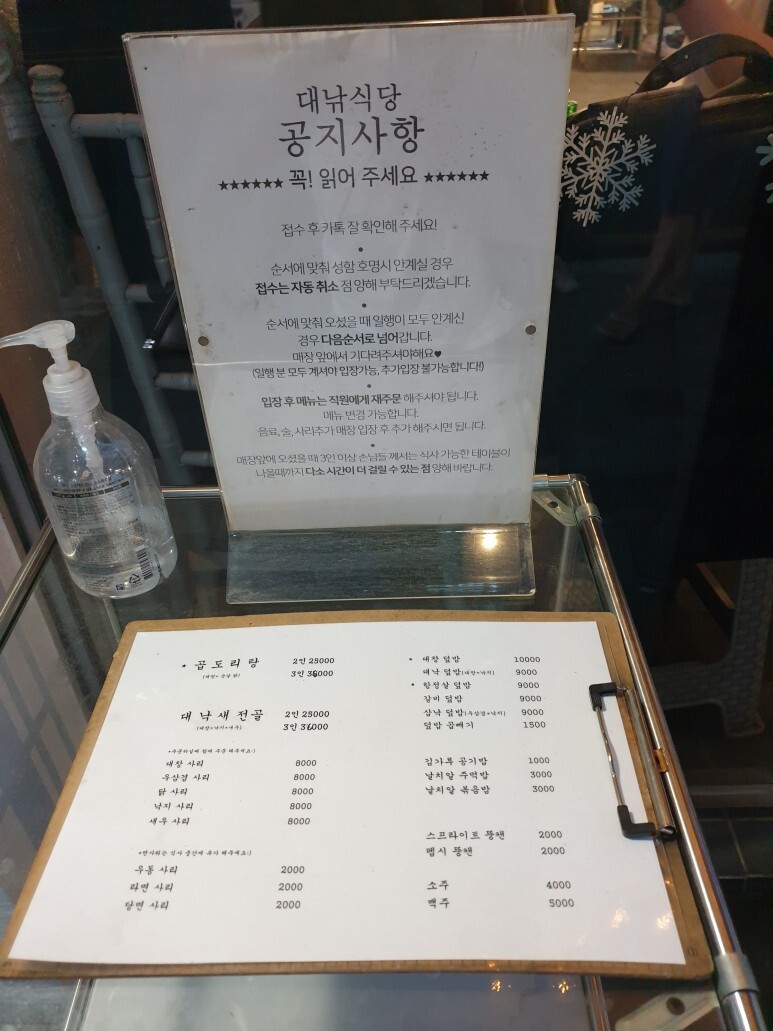 대낚식당
공지사항
★★★★★★ 꼭! 읽어 주세요 ★★★★★★
접수 후 카톡 잘 확인해 주세요!
•
순서에 맞춰 성함 호명시 안계실 경우
접수는 자동 취소 점 양해 부탁드리겠습니다.
•
순서에 맞춰 오셨을 때 일행이 모두 안계신
경우 다음순서로 넘어갑니다.
매장 앞에서 기다려주셔야해요♥
(일행 분 모두 계셔야 입장가능, 추가입장 불가능합니다!)
•
입장 후 메뉴는 직원에게 재주문 해주셔야 됩니다.
메뉴 변경 가능합니다.
음료, 술, 사리추가 매장 입장 후 추가 해주시면 됩니다.
•
매장앞에 오셨을 때 3인 이상 손님들 께서는 식사 가능한 테이블이
나올때까지 다소 시간이 더 걸릴 수 있는 점 양해 바랍니다.
• 곱도리탕 2인 25000
3인 36000
대낙새전골 2인 25000
(대창+낙지+새우) 3인 36000
대창 사리 8000
우삼겹 사리 8000
닭 사리 8000
낙지 사리 8000
새우 사리 8000
우동 사리 2000
라면 사리 2000
당면 사리 2000
• 대창 덮밥 10000
대낙 덮밥(대창+낙지) 9000
• 항정살 덮밥 9000
갈비 덮밥 9000
삼낙 덮밥(우삼겹+낙지) 9000
덮밥 곱빼기 1500
김가루 공기밥 1000
날치알 주먹밥 3000
날치알 볶음밥 3000
스프라이트 뚱캔 2000
펩시 뚱캔 2000
소주 4000
맥주 5000